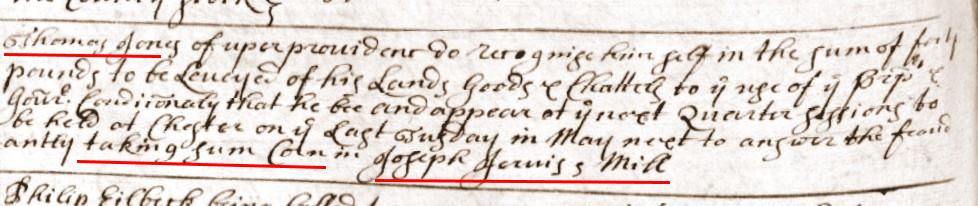 Thomas Jones of uper provident do recognise him self in the sum of forty
pounds to be Leveyed of his Lands Goods & Chattels to ye use of ye Prop &
Gour. Condicionaly that he bee and appear at ye next Quarter sessions to
be held at Chester on ye Last tusday in May next to answer the fraud
antly taking sum Corn in Joseph Jervis s Mill
Philip Eilbeck being called